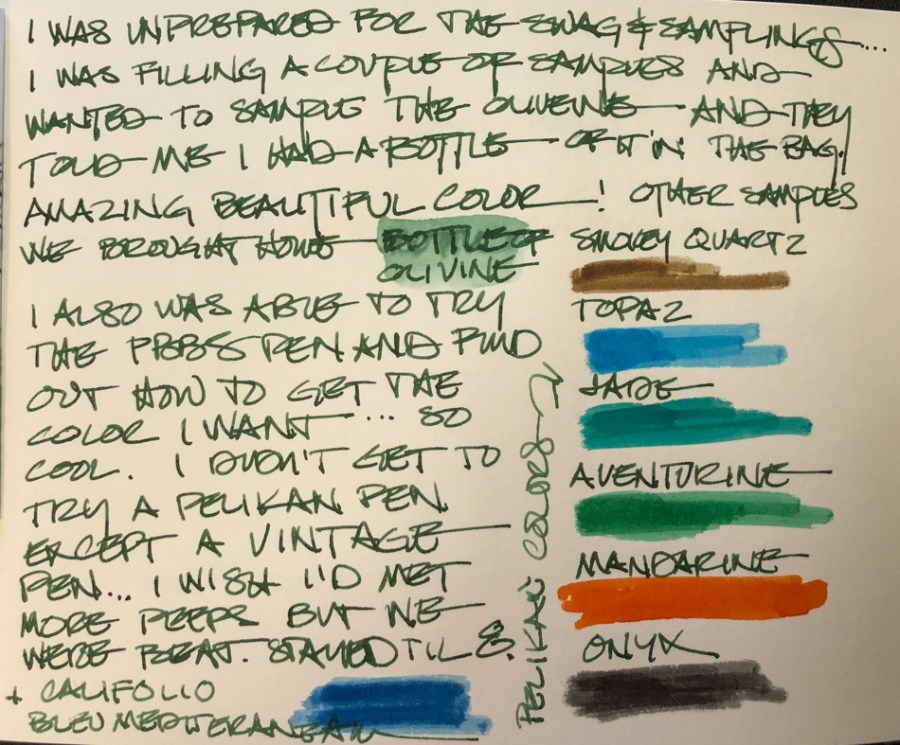 I WAS UNPREPARED FOR THE SWAG & SAMPLINGS...
I WAS FILLING A COUPLE OF SAMPLES AND
WANTED TO SAMPLE THE OLIVEINE AND THEY
TOLD ME I HAD A BOTTLE OF IT IN THE BAG.
AMAZING BEAUTIFUL COLOR! OTHER SAMPLES
WE BROUGHT HOME
BOTTLE OF
OLIVINE
I ALSO WAS ABLE TO TRY
THE PBBS PEN AND FIND
OUT HOW TO GET THE
COLOR I WANT... SO
COOL. I DIDN'T GET TO
TRY A PELIKAN PEN
EXCEPT A VINTAGE
PEN... I WISH I'D MET
MORE PEEPS BUT WE
WERE BEAT. STAYED TIL 8.
+ CALIFOLIO
BLEU MEDITERANEAN
PELIKAN COLORS
SMOKEY QUARTZ
TOPAZ
JADE
AVENTURINE
MANDARINE
ONYX